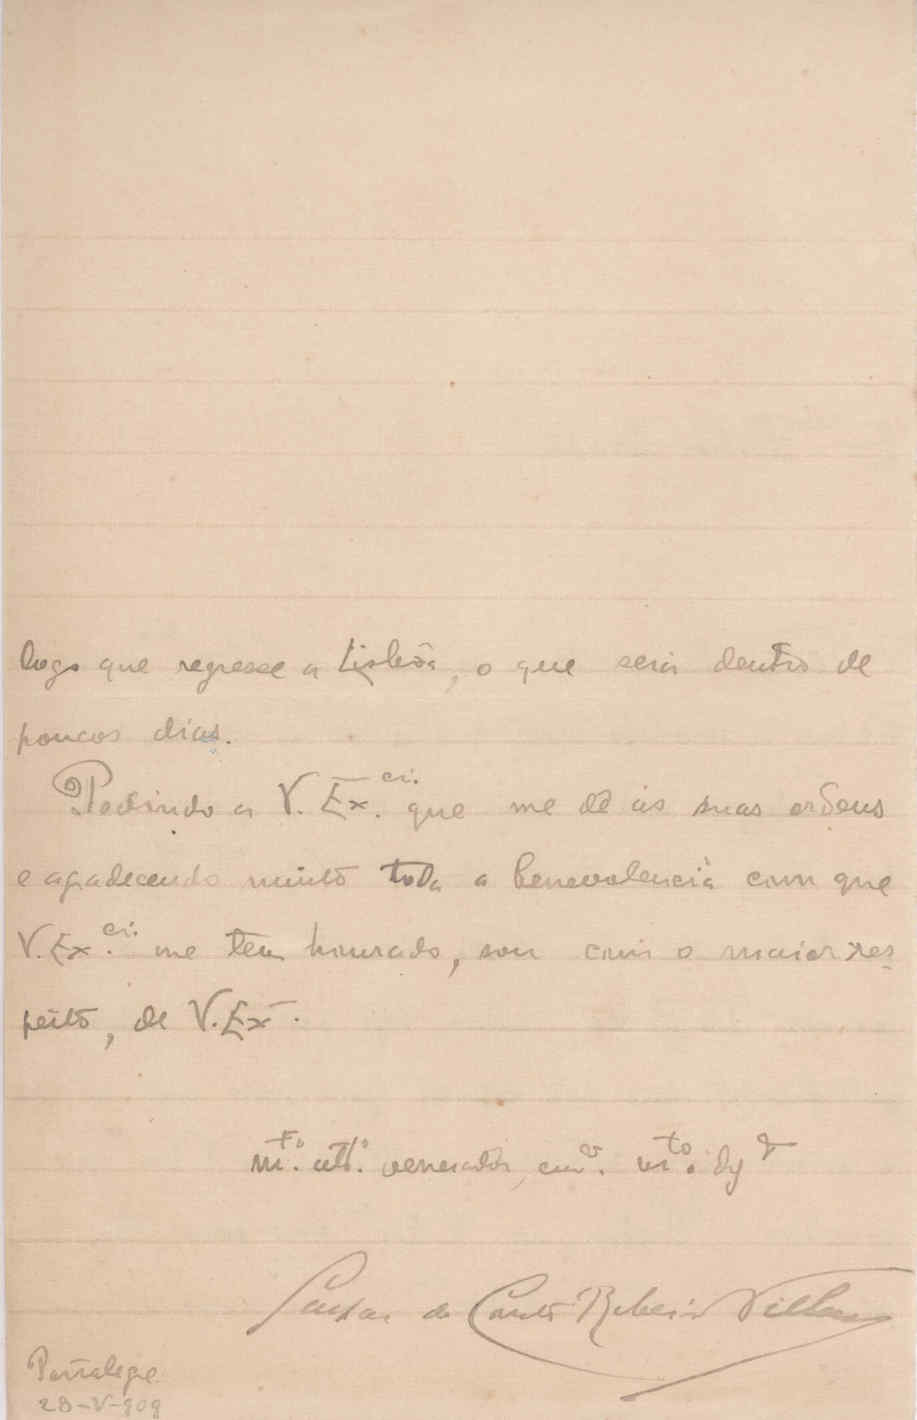 logo que regresse a Lisbôa, o que será dentro de
poucos dias.
Pedindo a V. Ex.cia. que me dê as suas ordens
e agradecendo muito toda a benevolencia com que
V. Ex.cia. me tem honrado, sou com o maior res-
peito, de V. Ex.
mto. atto. venerador, mto.
Gaspar do Couto Ribeiro Villas
Portalegre
28-V-909